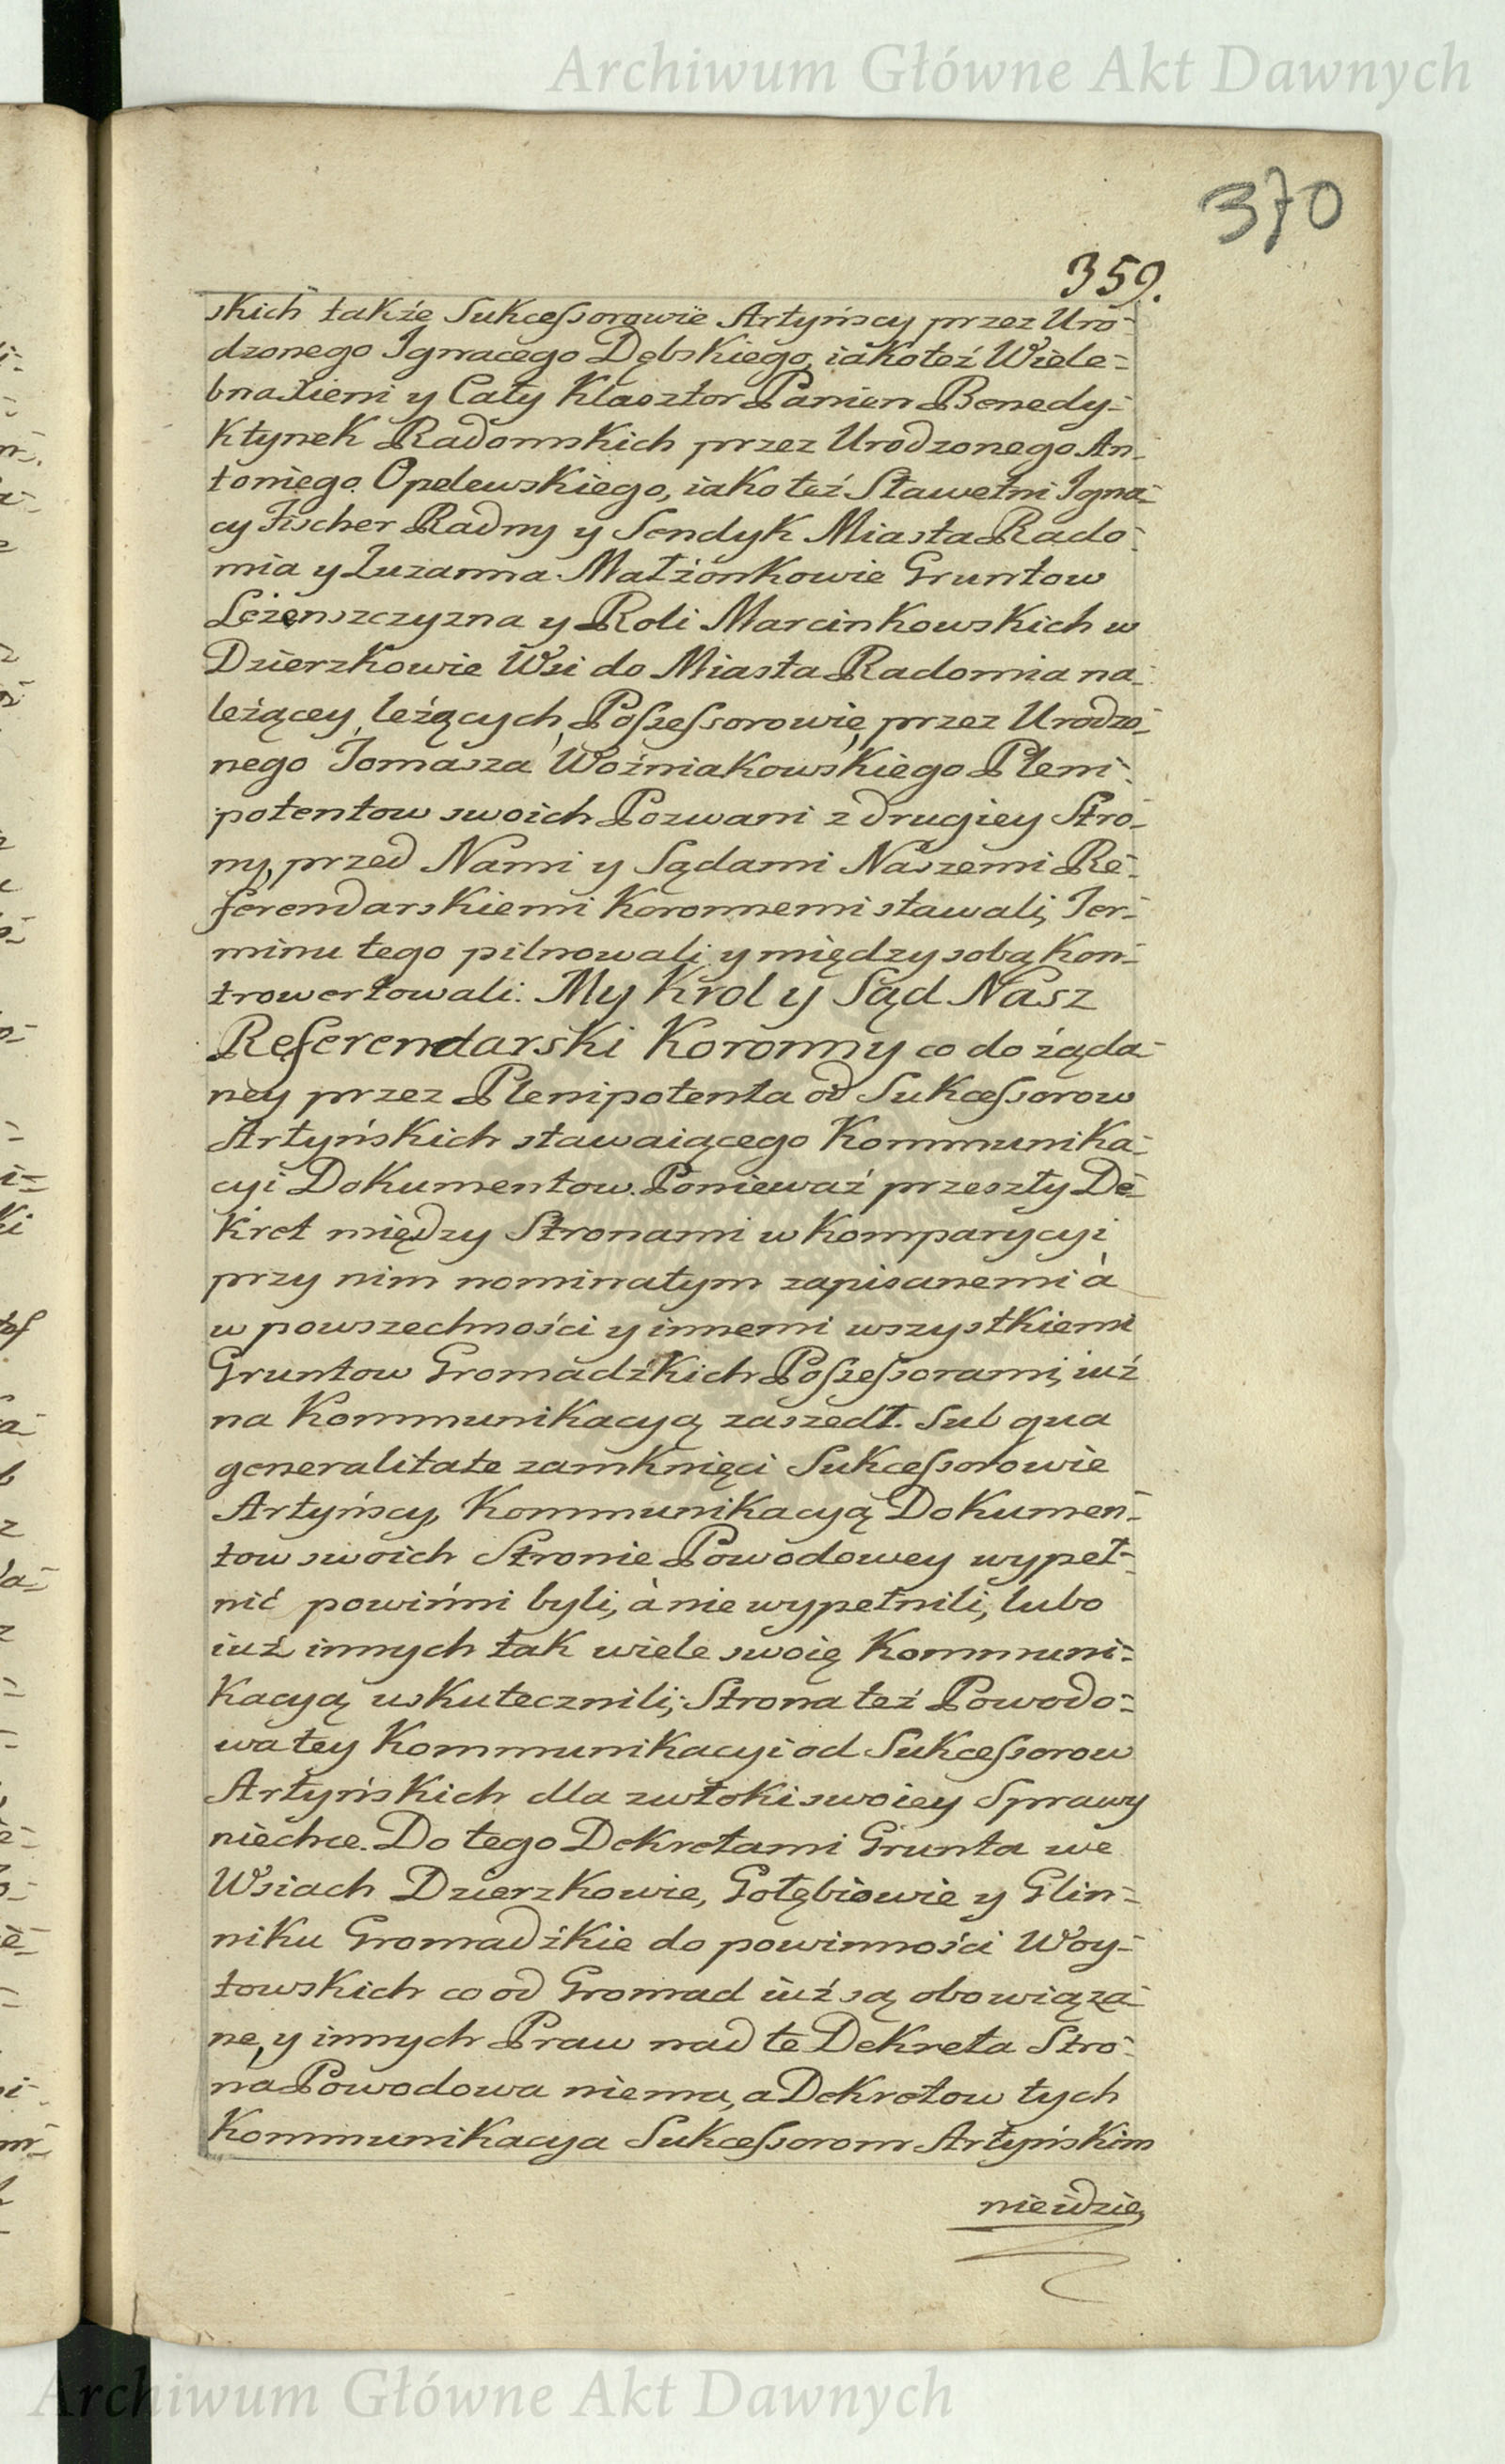 Archiwum Główne Akt Dawnych
370
359.
skich także Sukcessorowie Artyńscy przez Uro-
dzonego Ignacego Dębskiego, iakoteż Wiele-
bna Xieni y Cały Klasztor Panien Benedy-
ktynek Radomskich przez Urodzonego An-
toniego Opelewskiego, iako też Sławetni Igna-
cy Fischer Radny y Sendyk Miasta Rado-
mia y Zuzanna Małżonkowie Gruntow
Leżenszczyzna y Roli Marcinkowskich w
Dzierzkowie Wsi do Miasta Radomia na-
leżącey, leżących, Possessorowie, przez Urodzo-
nego Tomasza Woźniakowskiego Pleni-
potentow swoich Pozwani z drugiey Stro-
ny, przed Nami y Sądami Naszemi Re-
ferendarskiemi Koronnemi stawali, Ter-
minu tego pilnowali y między sobą kon-
trowertowali: My Krol y Sąd Nasz
Referendarski Koronny co do żąda-
ney przez Plenipotenta od Sukcessorow
Artyńskich stawaiącego Kommunika-
cyi Dokumentow. Ponieważ przeszły De-
kret między Stronami w komparycyi
przy nim nominatym zapisanemi à
w powszechności y innemi wszystkiemi
Gruntow Gromadzkich Possessorami, iuż
na Kommunikacyą zaszedł. Sub qua
generalitate zamknięci Sukcessorowie
Artyńscy, Kommunikacyą Dokumen-
tow swoich Stronie Powodowey wypeł-
nić powinni byli, à nie wypełnili, lubo
iuż innych tak wiele swoię Kommuni-
kacyą uskutecznili; Strona też Powodo-
wa tey Kommunikacyi od Sukcessorow
Artyńskich dla zwłoki swoiey Sprawy
niechce. Do tego Dekretami Grunta we
Wsiach Dzierzkowie, Gołębiowie y Glin-
niku Gromadzkie do powinności Woy-
towskich co od Gromad iuż są obowiąza-
ne, y innych Praw nad te Dekreta Stro-
na Powodowa niema, a Dekretow tych
Kommunikacya Sukcessorom Artyńskim
nieidzie,
Archiwum Główne Akt Dawnych